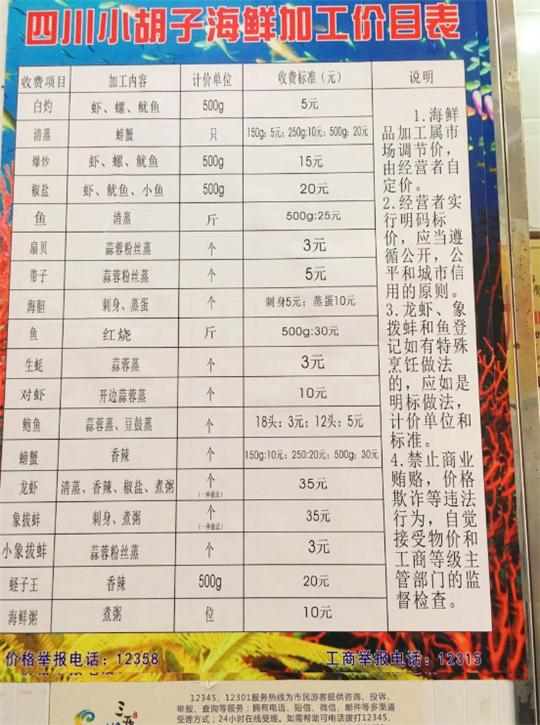 四川小胡子海鲜加工价目表
收费项目 加工内容 计价单位 收费标准（元） 说明
白灼 虾、螺、鱿鱼 500g 5元
清蒸 螃蟹 只 150g：5元；250g:10元；500g：20元
爆炒 虾、螺、鱿鱼 500g 15元
椒盐 虾、鱿鱼、小鱼 500g 20元
鱼 清蒸 斤 500g:25元
扇贝 蒜蓉粉丝蒸 个 3元
带子 蒜蓉粉丝蒸 个 5元
海胆 刺身、蒸蛋 个 刺身5元；蒸蛋10元
鱼 红烧 斤 500g:30元
生蚝 蒜蓉蒸 个 3元
对虾 开边蒜蓉蒸 个 10元
鲍鱼 蒜蓉蒸、豆鼓蒸 个 18头：3元；12头：5元
螃蟹 香辣 个 150g:10元；250:20元；500g：30元
龙虾 清蒸、香辣、椒盐、煮粥 个 35元
（一种做法）
象拔蚌 刺身、煮粥 个 35元
（一种做法）
小象拔蚌 蒜蓉粉丝蒸 个 3元
蛏子王 香辣 500g 20元
海鲜粥 煮粥 位 10元
1.海鲜
品加工属市
场调节价，
由经营者自
定价。
2.经营者实
行明码标
价，应当遵
循公开，公
平和城市信
用的原则。
3.龙虾、象
拨蚌和鱼登
记如有特殊
烹饪做法
的，应如是
明标做法，
计价单位和
标准。
4.禁止商业
贿赂，价格
欺诈等违法
行为，自觉
接受物价和
工商等级主
管部门的监
督检查。
价格举报电话：12358 工商举报电话：12315
12345、12301服务热线为市民游客提供咨询、投诉、
举报、查询等服务；拥有电话、短信、微信、邮件等多渠道
受理方式；24小时在线受理。如需帮助可电话拨打12345、